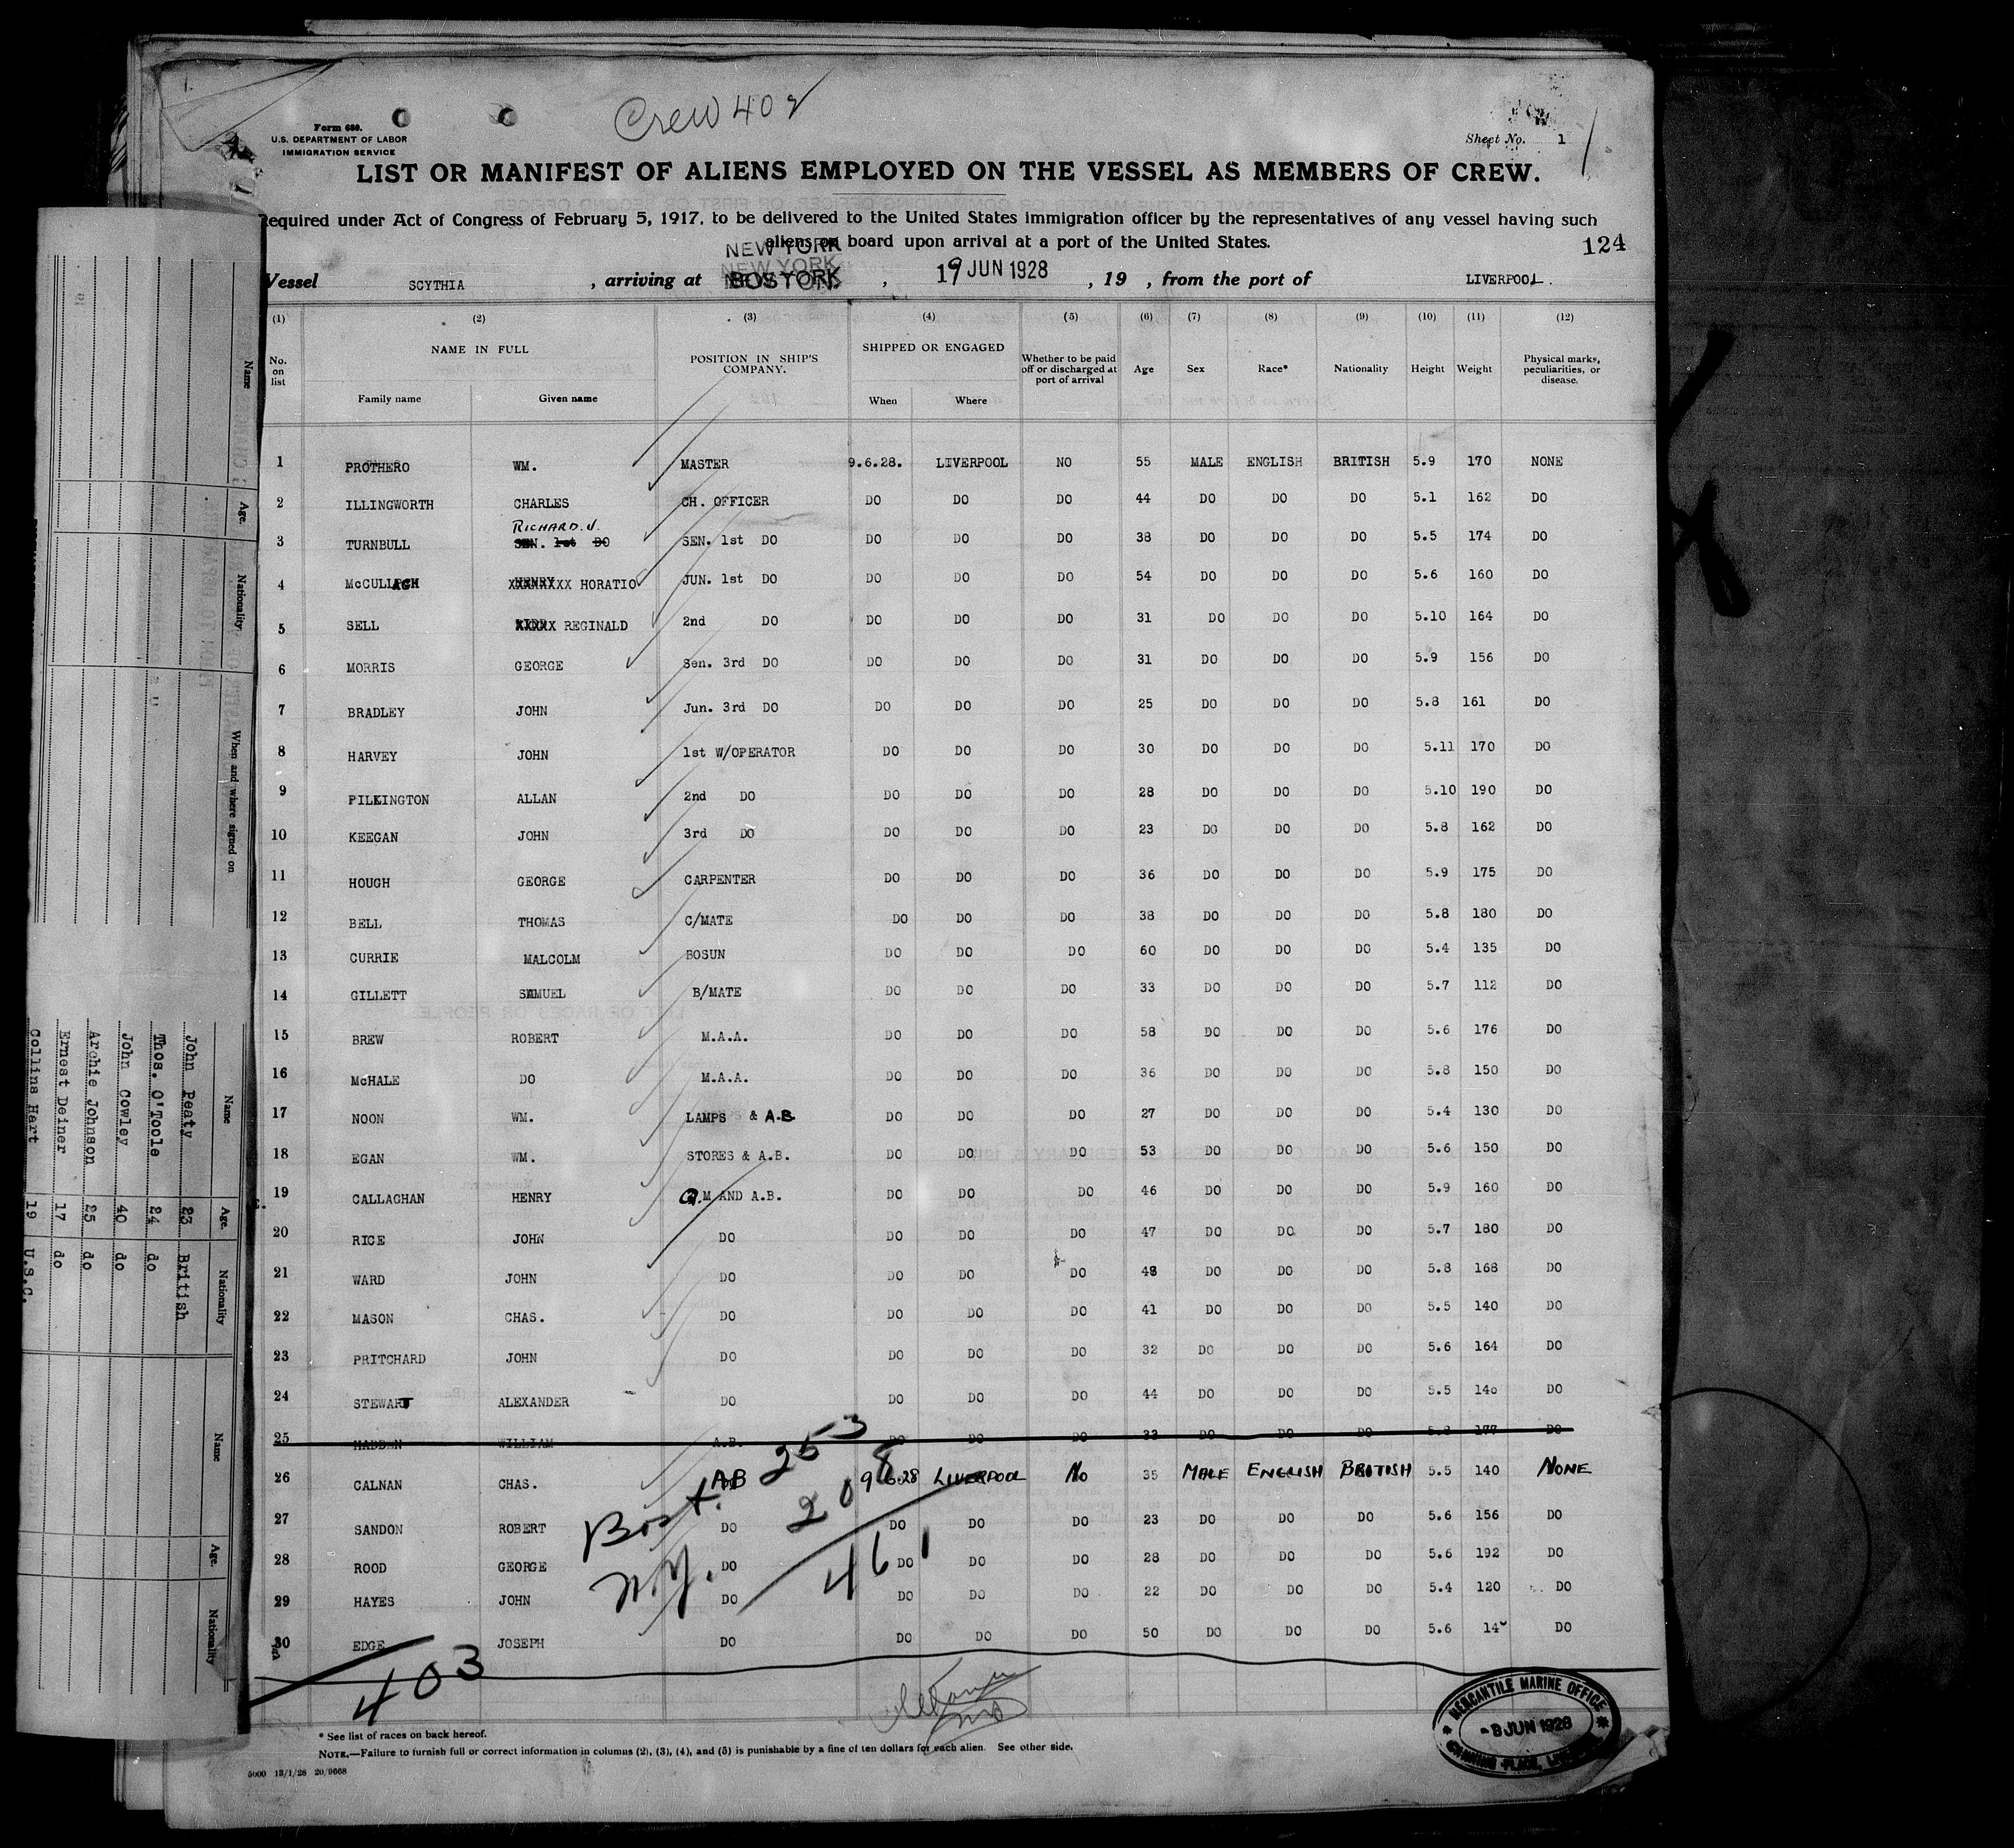 Crew 402
Form 680.
U.S. DEPARTMENT OF LABOR
IMMIGRATION SERVICE
Sheet No. 1
LIST OR MANIFEST OF ALIENS EMPLOYED ON THE VESSEL AS MEMBERS OF CREW.
Required under Act of Congress of February 5, 1917, to be delivered to the United States immigration officer by the representatives of any vessel having such
aliens on board upon arrival at a port of the United States.
124
NEW YORK
NEW YORK
Vessel SCYTHIA , arriving at BOSTON. , 19 JUN 1928 , 19 , from the port of LIVERPOOL.
(1) (2) (3) (4) (5) (6) (7) (8) (9) (10) (11) (12)
No. on list NAME IN FULL POSITION IN SHIP'S COMPANY. SHIPPED OR ENGAGED Whether to be paid off or discharged at port of arrival Age Sex Race* Nationality Height Weight Physical marks, peculiarities, or disease.
Family name Given name When Where
1 PROTHERO WM. MASTER 9.6.28. LIVERPOOL NO 55 MALE ENGLISH BRITISH 5.9 170 NONE
2 ILLINGWORTH CHARLES CH. OFFICER DO DO DO 44 DO DO DO 5.1 162 DO
RICHARD. J.
3 TURNBULL SEN. 1st DO SEN. 1st DO DO DO DO 38 DO DO DO 5.5 174 DO
4 McCULLAGH HORATIO JUN. 1st DO DO DO DO 54 DO DO DO 5.6 160 DO
5 SELL REGINALD 2nd DO DO DO DO 31 DO DO DO 5.10 164 DO
6 MORRIS GEORGE Sen. 3rd DO DO DO DO 31 DO DO DO 5.9 156 DO
7 BRADLEY JOHN Jun. 3rd DO DO DO DO 25 DO DO DO 5.8 161 DO
8 HARVEY JOHN 1st W/OPERATOR DO DO DO 30 DO DO DO 5.11 170 DO
9 PILKINGTON ALLAN 2nd DO DO DO DO 28 DO DO DO 5.10 190 DO
10 KEEGAN JOHN 3rd DO DO DO DO 23 DO DO DO 5.8 162 DO
11 HOUGH GEORGE CARPENTER DO DO DO 36 DO DO DO 5.9 175 DO
12 BELL THOMAS C/MATE DO DO DO 38 DO DO DO 5.8 180 DO
13 CURRIE MALCOLM BOSUN DO DO DO 60 DO DO DO 5.4 135 DO
14 GILLETT SAMUEL B/MATE DO DO DO 33 DO DO DO 5.7 112 DO
15 BREW ROBERT M.A.A. DO DO DO 58 DO DO DO 5.6 176 DO
16 McHALE DO M.A.A. DO DO DO 36 DO DO DO 5.8 150 DO
17 NOON WM. LAMPS & A.B DO DO DO 27 DO DO DO 5.4 130 DO
18 EGAN WM. STORES & A.B. DO DO DO 53 DO DO DO 5.6 150 DO
19 CALLAGHAN HENRY Q.M AND A.B. DO DO DO 46 DO DO DO 5.9 160 DO
20 RICE JOHN DO DO DO DO 47 DO DO DO 5.7 180 DO
21 WARD JOHN DO DO DO DO 48 DO DO DO 5.8 168 DO
22 MASON CHAS. DO DO DO DO 41 DO DO DO 5.5 140 DO
23 PRITCHARD JOHN DO DO DO DO 32 DO DO DO 5.6 164 DO
24 STEWART ALEXANDER DO DO DO DO 44 DO DO DO 5.5 140 DO
25 MADDEN WILLIAM A.B. DO DO DO 33 DO DO DO 5.8 177 DO
26 CALNAN CHAS. AB 9.6.28 LIVERPOOL No 35 MALE ENGLISH BRITISH 5.5 140 NONE
27 SANDON ROBERT DO DO DO DO 23 DO DO DO 5.6 156 DO
28 ROOD GEORGE DO DO DO DO 28 DO DO DO 5.6 192 DO
29 HAYES JOHN DO DO DO DO 22 DO DO DO 5.4 120 DO
30 EDGE JOSEPH DO DO DO DO 50 DO DO DO 5.6 14 DO
Bost. 253
N.Y. 208
461
403
* See list of races on back hereof.
NOTE.—Failure to furnish full or correct information in columns (2), (3), (4), and (5) is punishable by a fine of ten dollars for each alien. See other side.
5000 13/1/28 20/9668
MERCANTILE MARINE OFFICE
-8 JUN 1928
CANNING PLACE, LIVERPOOL
Name Age. Nationality. When and where signed on
Name Age. Nationality
John Peaty 23 British
Thos. O'Toole 24 do
John Cowley 40 do
Archie Johnson 25 do
Ernest Deiner 17 do
Collins Hart 19 U.S.C.
Name Age. Nationality